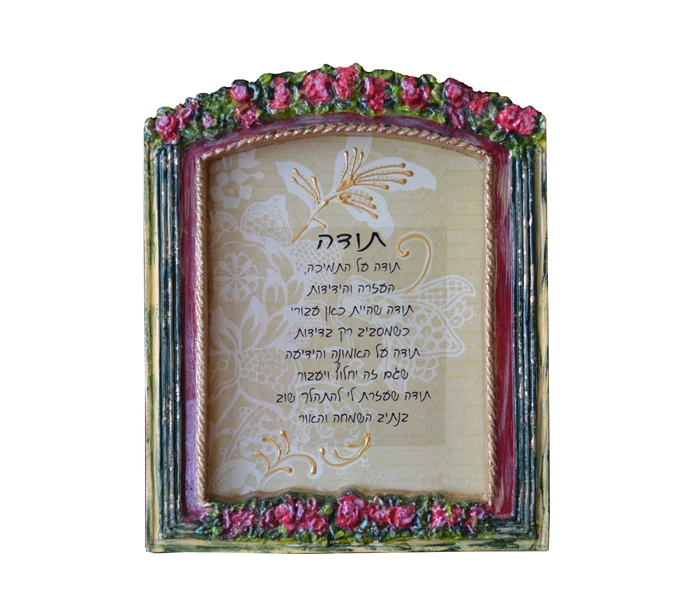 תודה
תודה על התמיכה,
העזרה והידידות
תודה שהיית כאן עבורי
כשמסביב רק בדידות
תודה על האמונה והידיעה
שגם זה יחלוף ויעבור
תודה שעזרת לי להתהלך שוב
בנתיב השמחה והאור